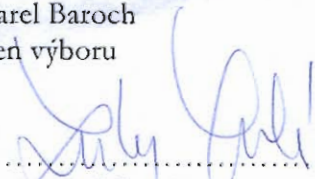 arel Baroch
en výboru